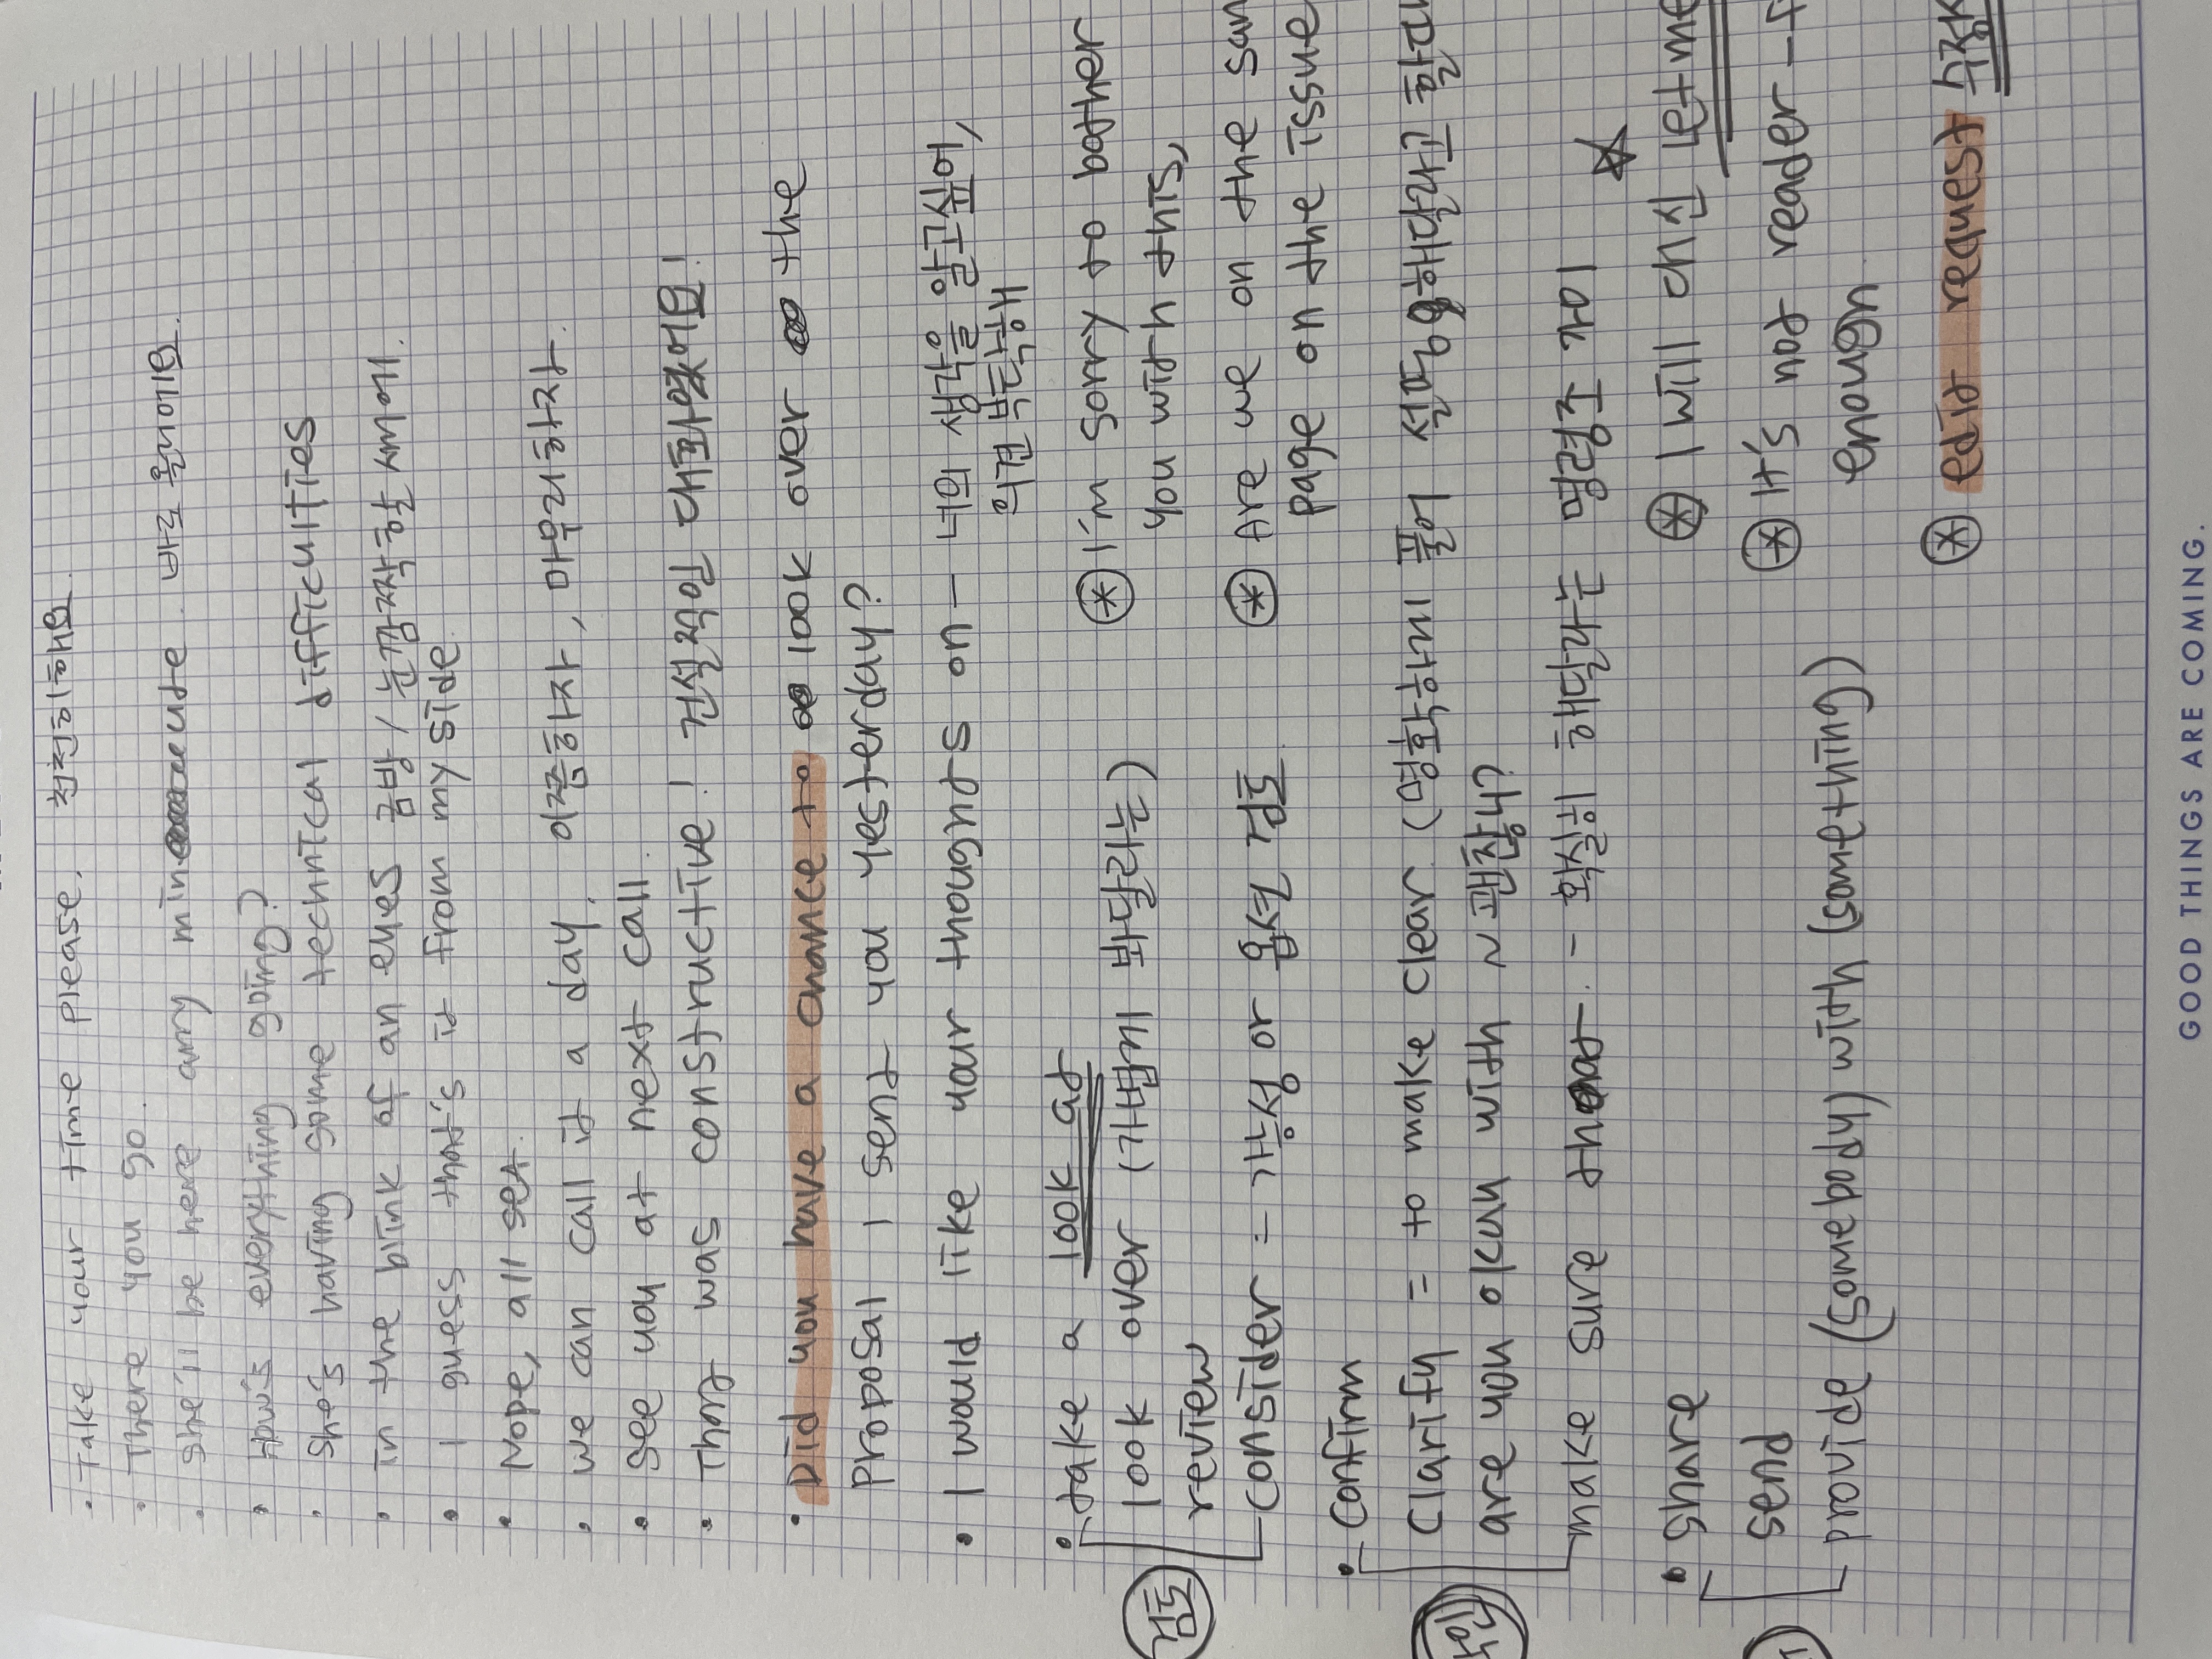 • Take your time please. 천천히해요.
• There you go.
• she'll be here any minute. 바로 올거에요.
• How's everything going?
• She's having some technical difficulties
• in the blink of an eyes 금방 / 눈깜짝할 새에.
• I guess that's it from my side.
• Nope, all set.
• we can call it a day. 이쯤하자, 마무리하자.
• see you at next call.
• That was constructive! 건설적인 대화였어요!
• Did you have a chance to look over the
proposal I sent you yesterday?
• I would like your thoughts on – 너의 생각을 알고싶어,
의견 부탁해
• take a look at
look over (가볍게 봐달라는)
review
consider = 감상 or 옵션 검토
검토
⊛ I'm sorry to bother
you with this,
⊛ Are we on the
page on the issue
• Confirm
Clarify = to make clear (명확하게 풀어 설명해달라고
are you okay with ~ 괜찮니?
make sure that – 확실히 해달라는 명령조 가이 ☆
• share
send
provide (somebody) with (something)
⊛ I will 대신 let me
⊛ It's not reader –
enough
⊛ edit request
GOOD THINGS ARE COMING.